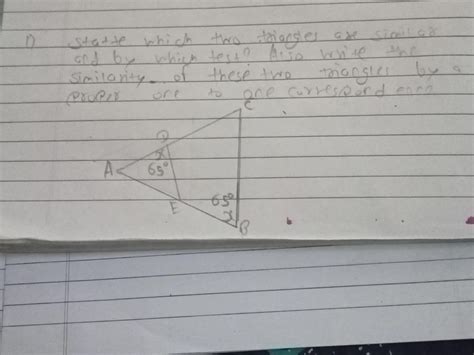 1) statte which two triangles are similar
and by which test? Also write the
similarity of these two triangles by a
proper one to one correspond each
C
D
x
A 65°
E 65°
x
B